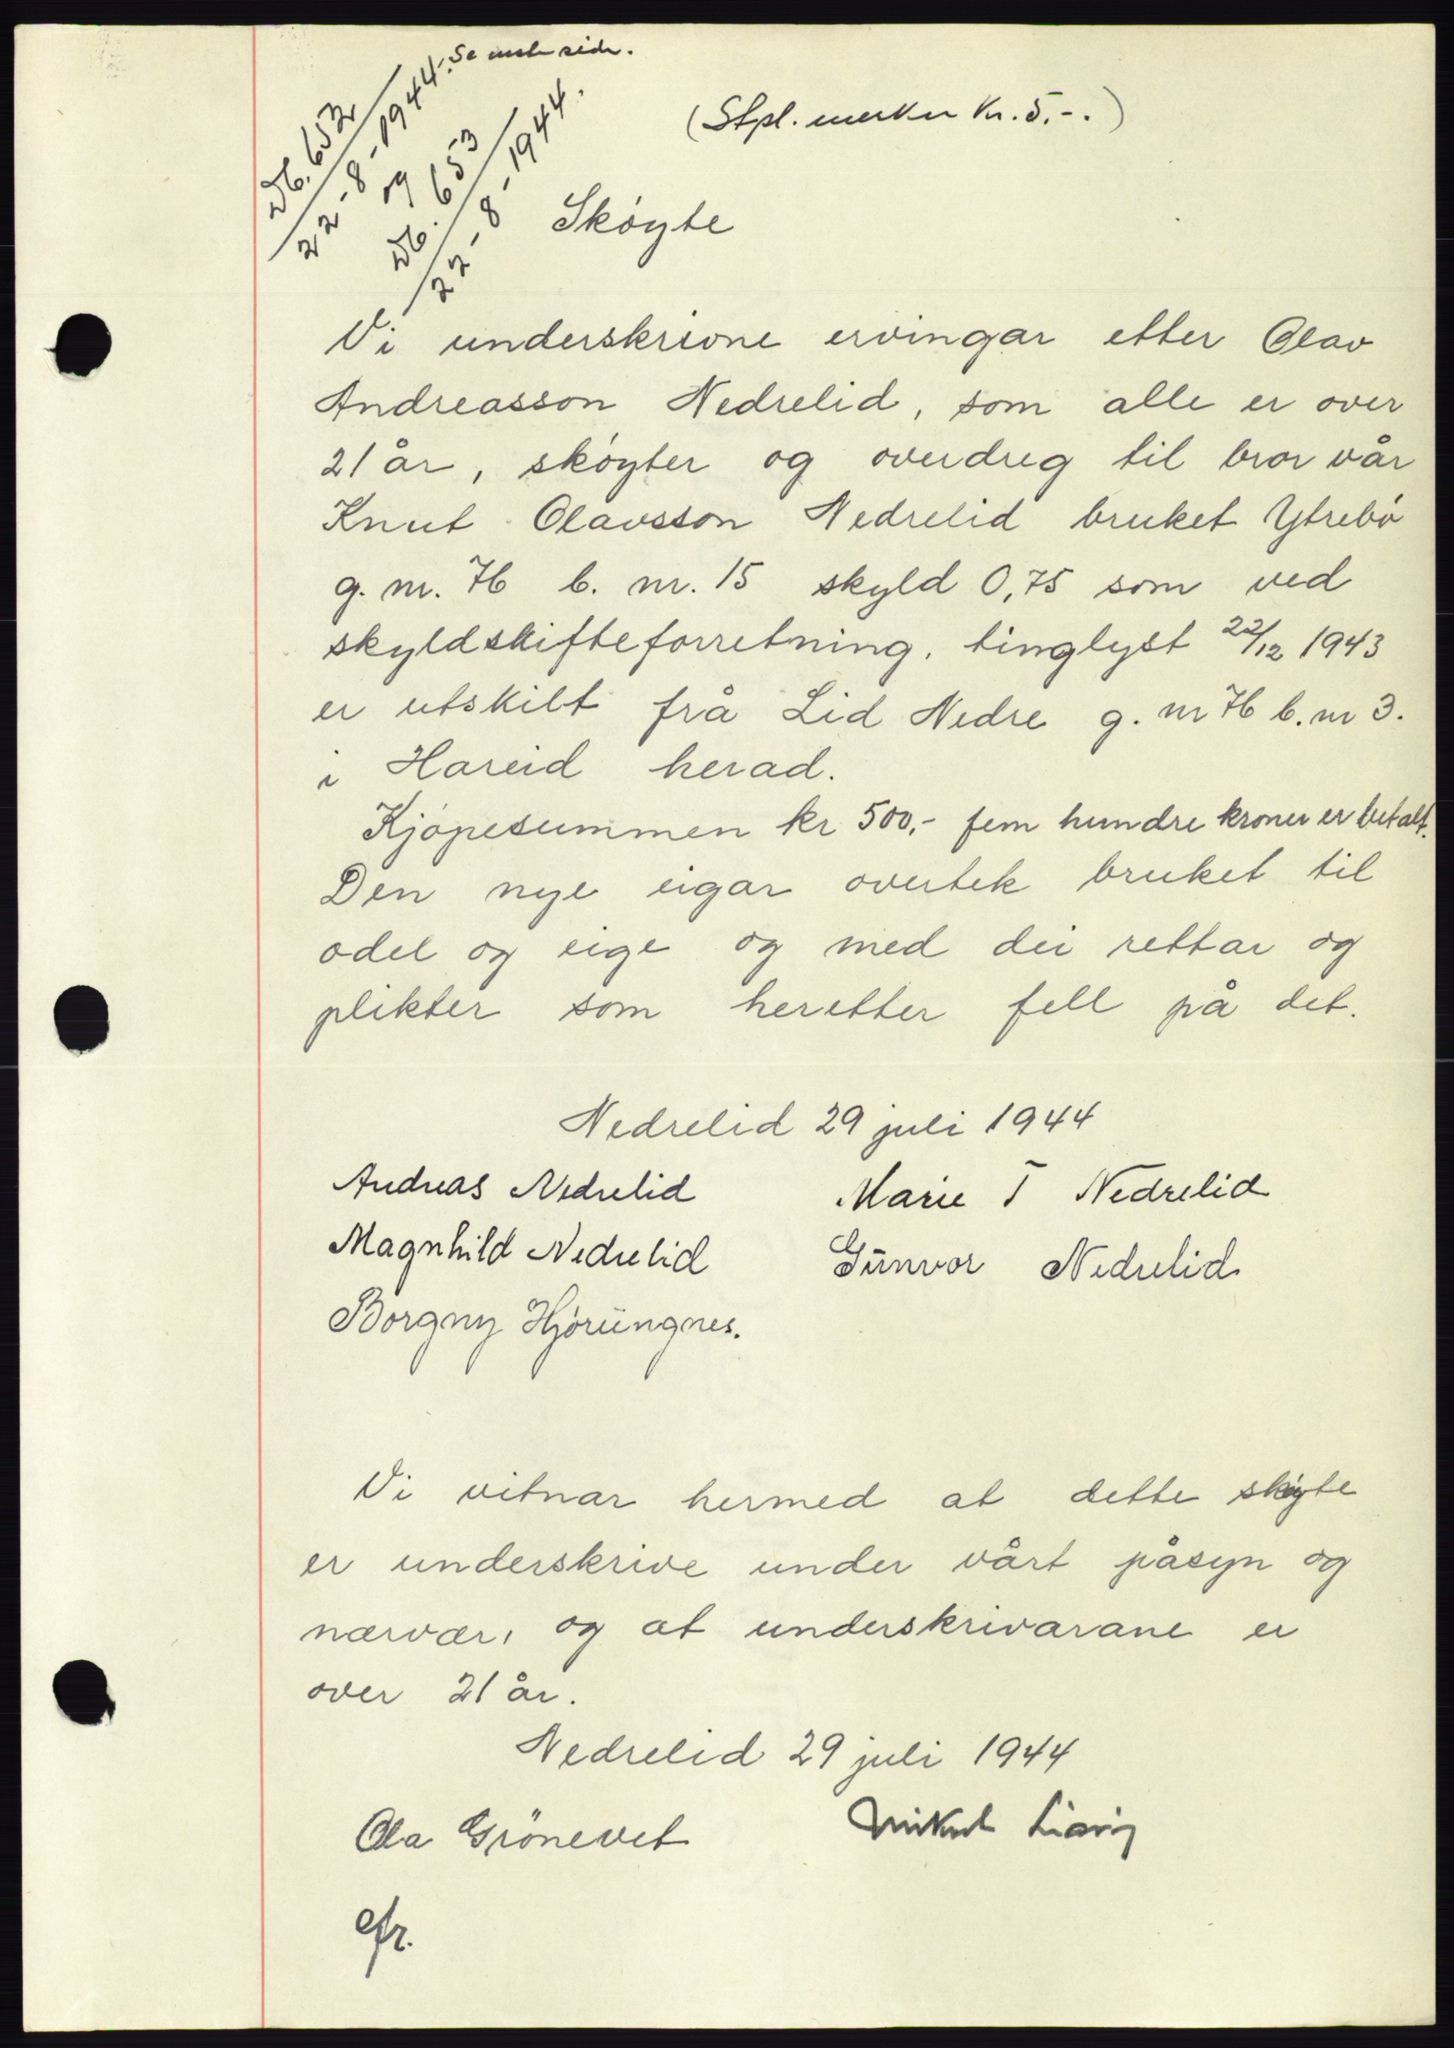 Db. 652
22-8-1944. Se neste side.
og
Db. 653
22-8-1944.
(Stpl. merker Kr. 5.-.)
Skøyte
Vi underskrivne ervingar etter Olav
Andreasson Nedrelid, som alle er over
21 år, skøyter og overdreg til bror vår
Knut Olavsson Nedrelid bruket Ytrebø
g. nr. 76 b. nr. 15 skyld 0,75 som ved
skyldskifteforretning, tinglyst 22/12 1943
er utskilt frå Lid Nedre g. nr 76 b. nr 3.
i Hareid herad.
Kjøpesummen kr 500,- fem hundre kroner er betalt.
Den nye eigar overtek bruket til
odel og eige og med dei rettar og
plikter som heretter fell på det.
Nedrelid 29 juli 1944
Andreas Nedrelid Marie T Nedrelid
Magnhild Nedrelid Gunvor Nedrelid
Borgny Hjørungnes.
Vi vitnar hermed at dette skøyte
er underskrive under vårt påsyn og
nærvær, og at underskrivarane er
over 21 år.
Nedrelid 29 juli 1944
Ola Grönevet